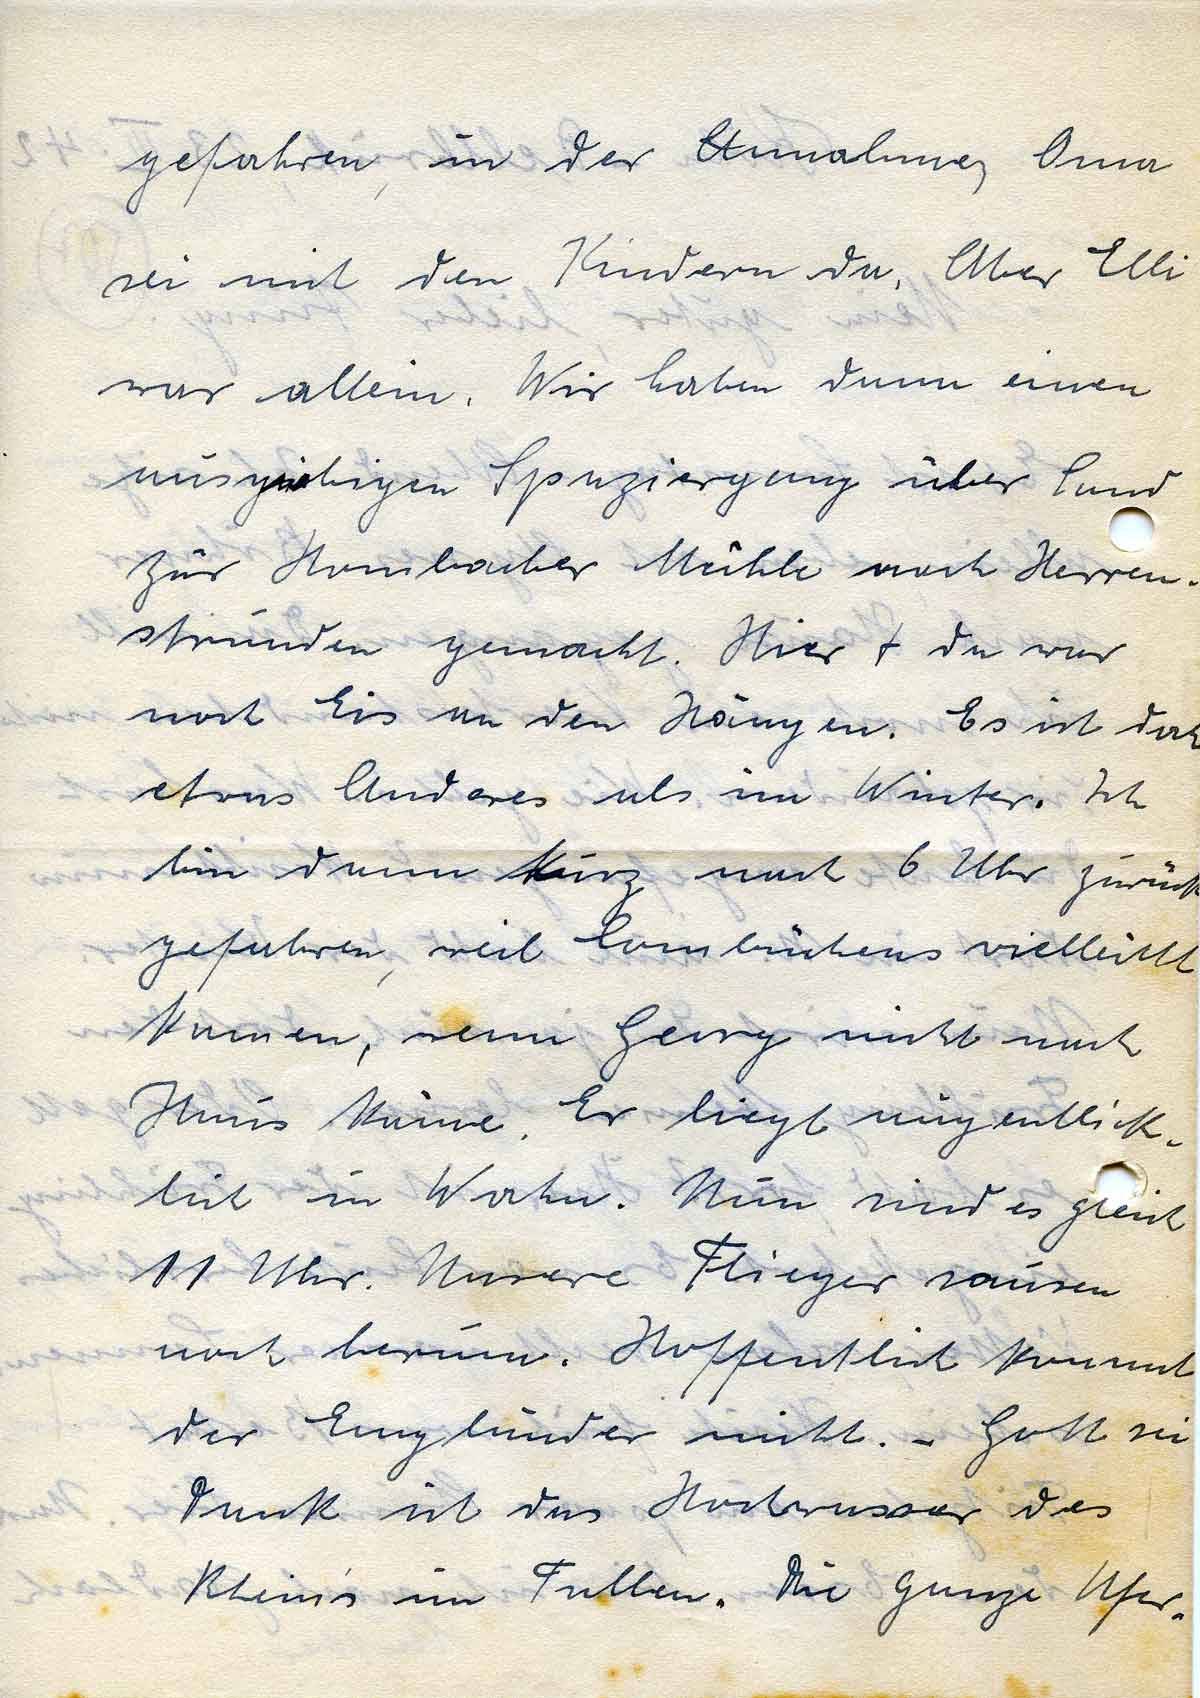 gefahren, in der Annahme, Oma
sei mit den Kindern da. Aber Elli
war allein. Wir haben dann einen
ausgiebigen Spaziergang über Land
zur Hombacher Mühle nach Herren-
strunden gemacht. Hier + da war
noch Eis an den Hängen. Es ist doch
etwas Anderes als im Winter. Ich
bin dann kurz nach 6 Uhr zurück
gefahren, weil Lombüchens vielleicht
kamen, wenn Georg nicht nach
Haus käme. Er liegt augenblick-
lich in Wahn. Nun sind es gleich
11 Uhr. Unsere Flieger sausen
noch herum. Hoffentlich kommt
der Engländer nicht. - Gott sei
Dank ist das Hochwasser des
Rhein's im Fallen. Die ganze Ufer-